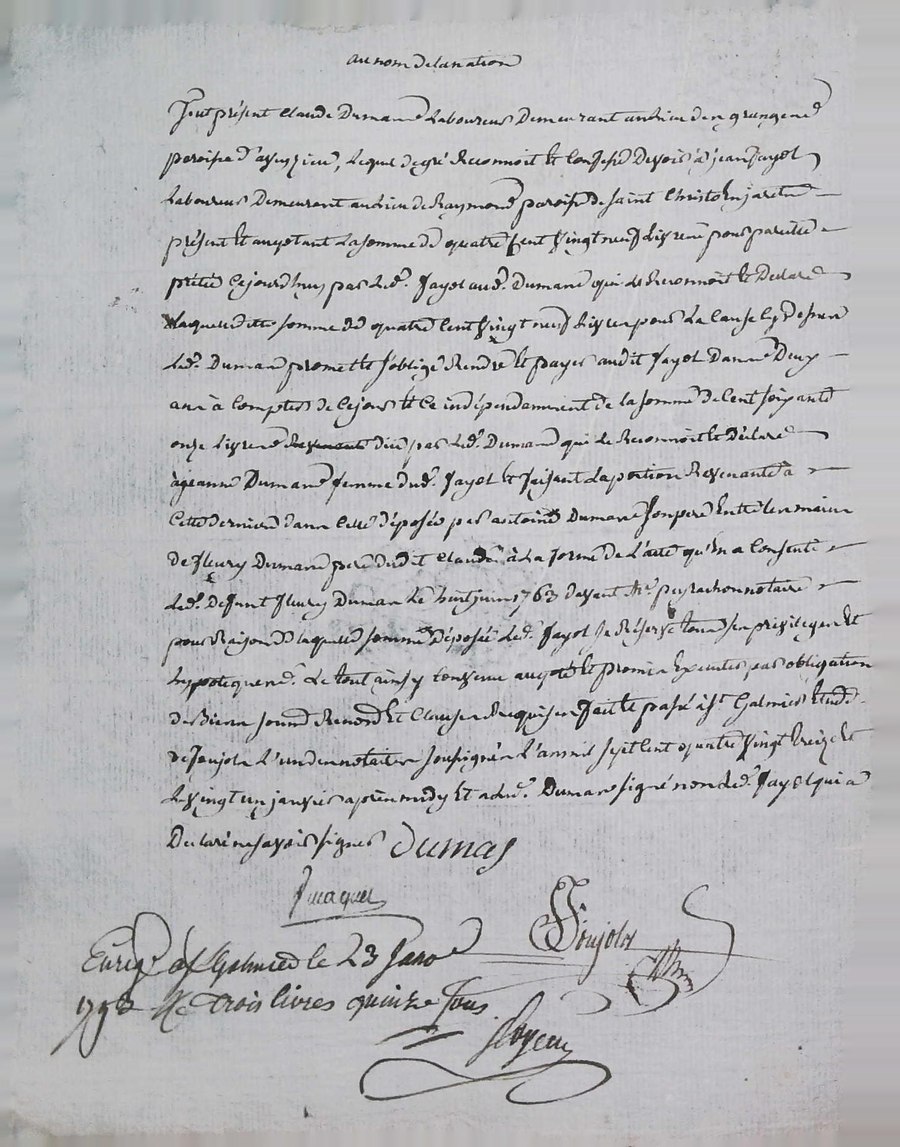 au nom de la nation
Fut présent Claude Dumas Laboureur Demeurant au lieu des granges
paroisse d'aveyzieu, Lequel de gré Reconnoit et Confesse Devoir à jean Jayol
Laboureur Demeurant au Lieu de Raymond paroisse de Saint Christo en jarets
présent et acceptant La somme de quatre Cent Vingt neuf Livres pour pareille
prêtée Cejourd'huy par Led. Jayol aud. Dumas qui Le Reconnoit et Declare
Laquelle ditte somme de quatre Cent Vingt neuf Livres pour La Cause Cy Dessus
Led. Dumas promet et S'oblige Rendre et payer audit Jayol Dans Deux
ans à Compter de Ce jour et Ce indépendamment de la somme de Cent Soixante
onze Livres dües par Led. Dumas qui Le Reconnoit et Déclare
à jeanne Dumas femme dud. Jayol et faisant La portion Revenante à
Cette derniere dans Celle déposée par antoine Dumas Son pere Entre les mains
de fleury Dumas pere dudit Claude à La forme de L'acte qu'en a Consenti
Led. Defunt fleury Dumas Le huit juin 1763 devant Me. peyrachon notaire
pour Raison de laquelle somme déposée Led. Jayol Se Réserve tous Ses privileges et
hypoteques. Le tout ainsy Convenu accepté et promis Executer par obligation
de Biens Soumd. Renond. Et Clauses Requises fait et passé à St Galmier Etude
de Joujols L'un des notaires Soussignés L'an mil Sept Cent quatre Vingt treize et
Le vingt un janvier après midy Et a Led. Dumas signé non led. Jayol qui a
Declaré ne savoir signer Dumas
Jacquet
Joujols
Enreg. à St Galmier le 23 Janv
1793 R. trois livres quinze Sous